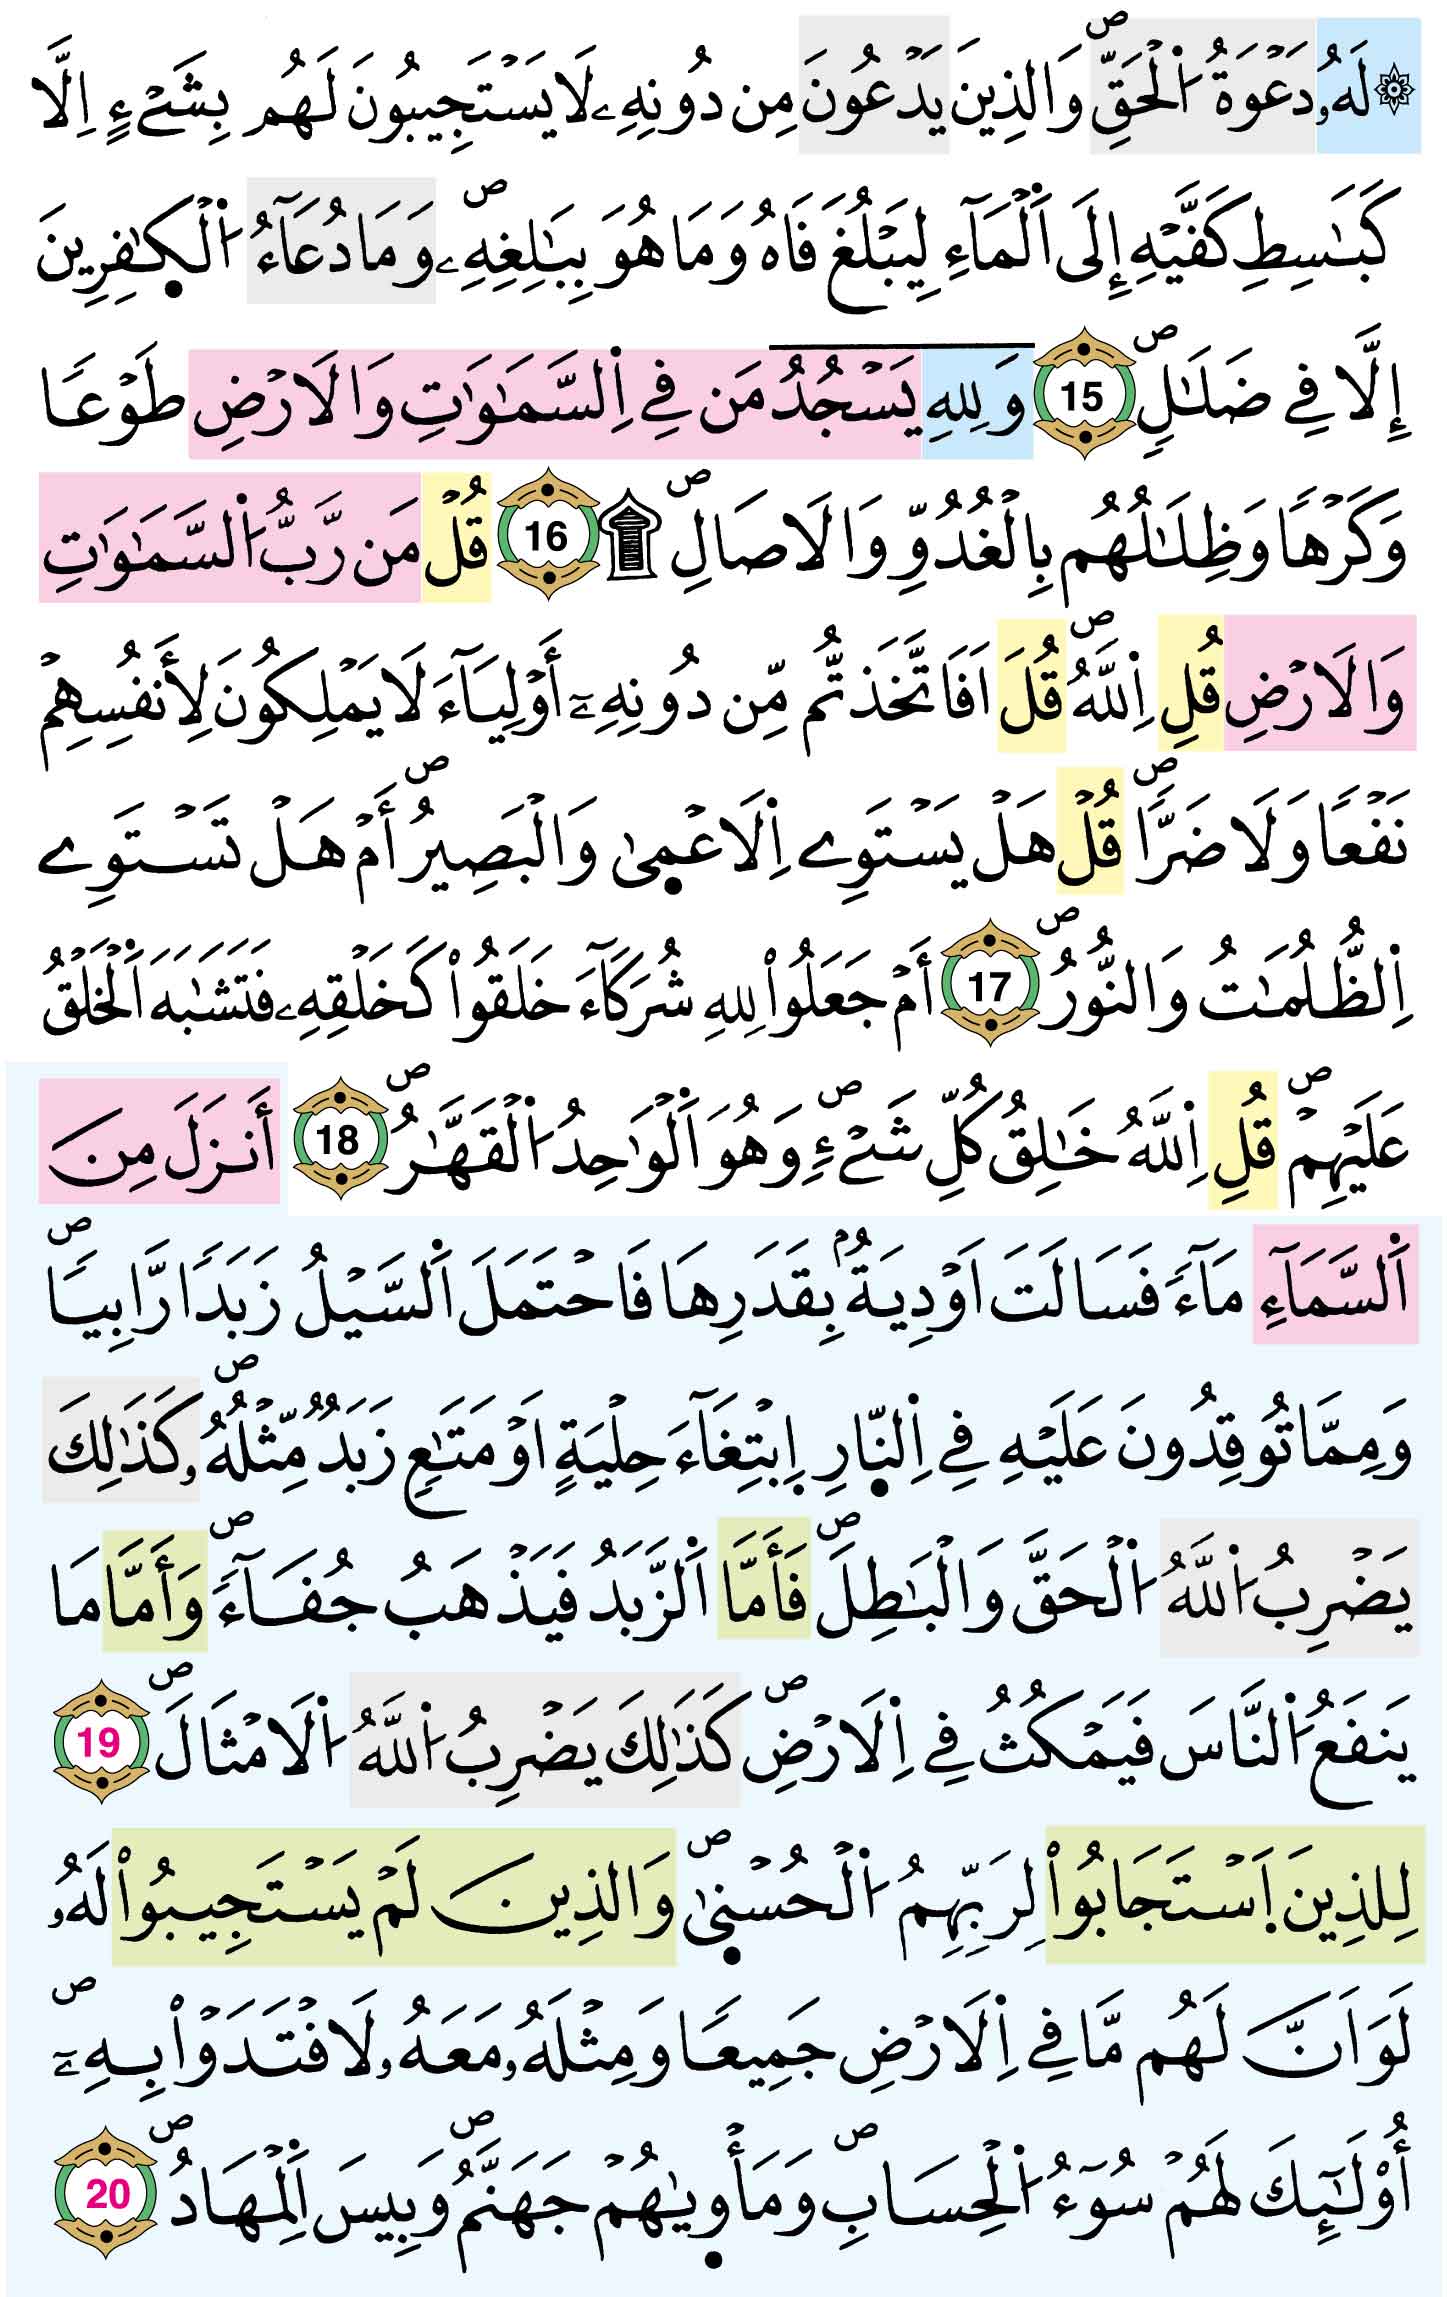 ۞ لَهُۥ دَعْوَةُ اُ۬لْحَقِّۖ وَالذِينَ يَدْعُونَ مِن دُونِهِۦ لَا يَسْتَجِيبُونَ لَهُم بِشَےْءٍ اِلَّا
كَبَٰسِطِ كَفَّيْهِ إِلَى اَ۬لْمَآءِ لِيَبْلُغَ فَاهُ وَمَا هُوَ بِبَٰلِغِهِۦۖ وَمَا دُعَآءُ اُ۬لْكٰٜفِرِينَ
إِلَّا فِے ضَلَٰلٖۖ 15 وَلِلهِ يَسْجُدُ مَن فِے اِ۬لسَّمَٰوَٰتِ وَالَارْضِ طَوْعاٗ
وَكَرْهاٗ وَظِلَٰلُهُم بِالْغُدُوِّ وَالَاصَالِۖ ۩ 16 قُلْ مَن رَّبُّ اُ۬لسَّمَٰوَٰتِ
وَالَارْضِ قُلِ اِ۬للَّهُۖ قُلَ اَفَاتَّخَذتُّم مِّن دُونِهِۦٓ أَوْلِيَآءَ لَا يَمْلِكُونَ لِأَنفُسِهِمْ
نَفْعاٗ وَلَا ضَرّاٗۖ قُلْ هَلْ يَسْتَوِے اِ۬لَاعْمٜىٰ وَالْبَصِيرُۖ أَمْ هَلْ تَسْتَوِے
اِ۬لظُّلُمَٰتُ وَالنُّورُۖ 17 أَمْ جَعَلُواْ لِلهِ شُرَكَآءَ خَلَقُواْ كَخَلْقِهِۦ فَتَشَٰبَهَ اَ۬لْخَلْقُ
عَلَيْهِمْۖ قُلِ اِ۬للَّهُ خَٰلِقُ كُلِّ شَےْءٖۖ وَهُوَ اَ۬لْوَٰحِدُ اُ۬لْقَهَّٰرُۖ 18 أَنزَلَ مِنَ
اَ۬لسَّمَآءِ مَآءٗ فَسَالَتَ اَوْدِيَةُۢ بِقَدَرِهَا فَاحْتَمَلَ اَ۬لسَّيْلُ زَبَداٗ رَّابِياٗۖ
وَمِمَّا تُوقِدُونَ عَلَيْهِ فِے اِ۬لنّٜارِ اِ۪بْتِغَآءَ حِلْيَةٍ اَوْ مَتَٰعٖ زَبَدٞ مِّثْلُهُۥۖ كَذَٰلِكَ
يَضْرِبُ اُ۬للَّهُ اُ۬لْحَقَّ وَالْبَٰطِلَۖ فَأَمَّا اَ۬لزَّبَدُ فَيَذْهَبُ جُفَآءٗۖ وَأَمَّا مَا
يَنفَعُ اُ۬لنَّاسَ فَيَمْكُثُ فِے اِ۬لَارْضِۖ كَذَٰلِكَ يَضْرِبُ اُ۬للَّهُ اُ۬لَامْثَالَۖ 19
لِلذِينَ اَ۪سْتَجَابُواْ لِرَبِّهِمُ اُ۬لْحُسْنٜىٰۖ وَالذِينَ لَمْ يَسْتَجِيبُواْ لَهُۥ
لَوَ اَنَّ لَهُم مَّا فِے اِ۬لَارْضِ جَمِيعاٗ وَمِثْلَهُۥ مَعَهُۥ لَافْتَدَوْاْ بِهِۦٓۖ
أُوْلَٰٓئِكَ لَهُمْ سُوٓءُ اُ۬لْحِسَابِۖ وَمَأْوٜيٰهُمْ جَهَنَّمُۖ وَبِيسَ اَ۬لْمِهَادُۖ 20